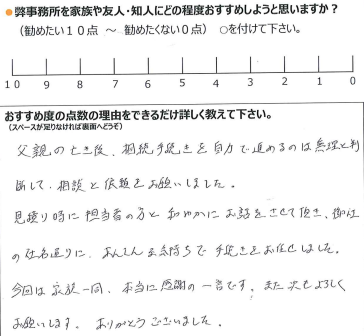 ●弊事務所を家族や友人・知人にどの程度おすすめしようと思いますか？
（勧めたい１０点　～　勧めたくない０点）　○を付けて下さい。
10 9 8 7 6 5 4 3 2 1 0
おすすめ度の点数の理由をできるだけ詳しく教えて下さい。
（スペースが足りなければ裏面へどうぞ）
父親の亡き後、相続手続きを自力で進めるのは無理と判
断して、相談と依頼をお願いしました。
見積り時に担当者の方と和やかにお話をさせて頂き、御社
の社名通りに、あんしんな気持ちで手続きをお任せしました。
今回は家族一同、本当に感謝の一言です。また次もよろしく
お願いします。ありがとうございました。